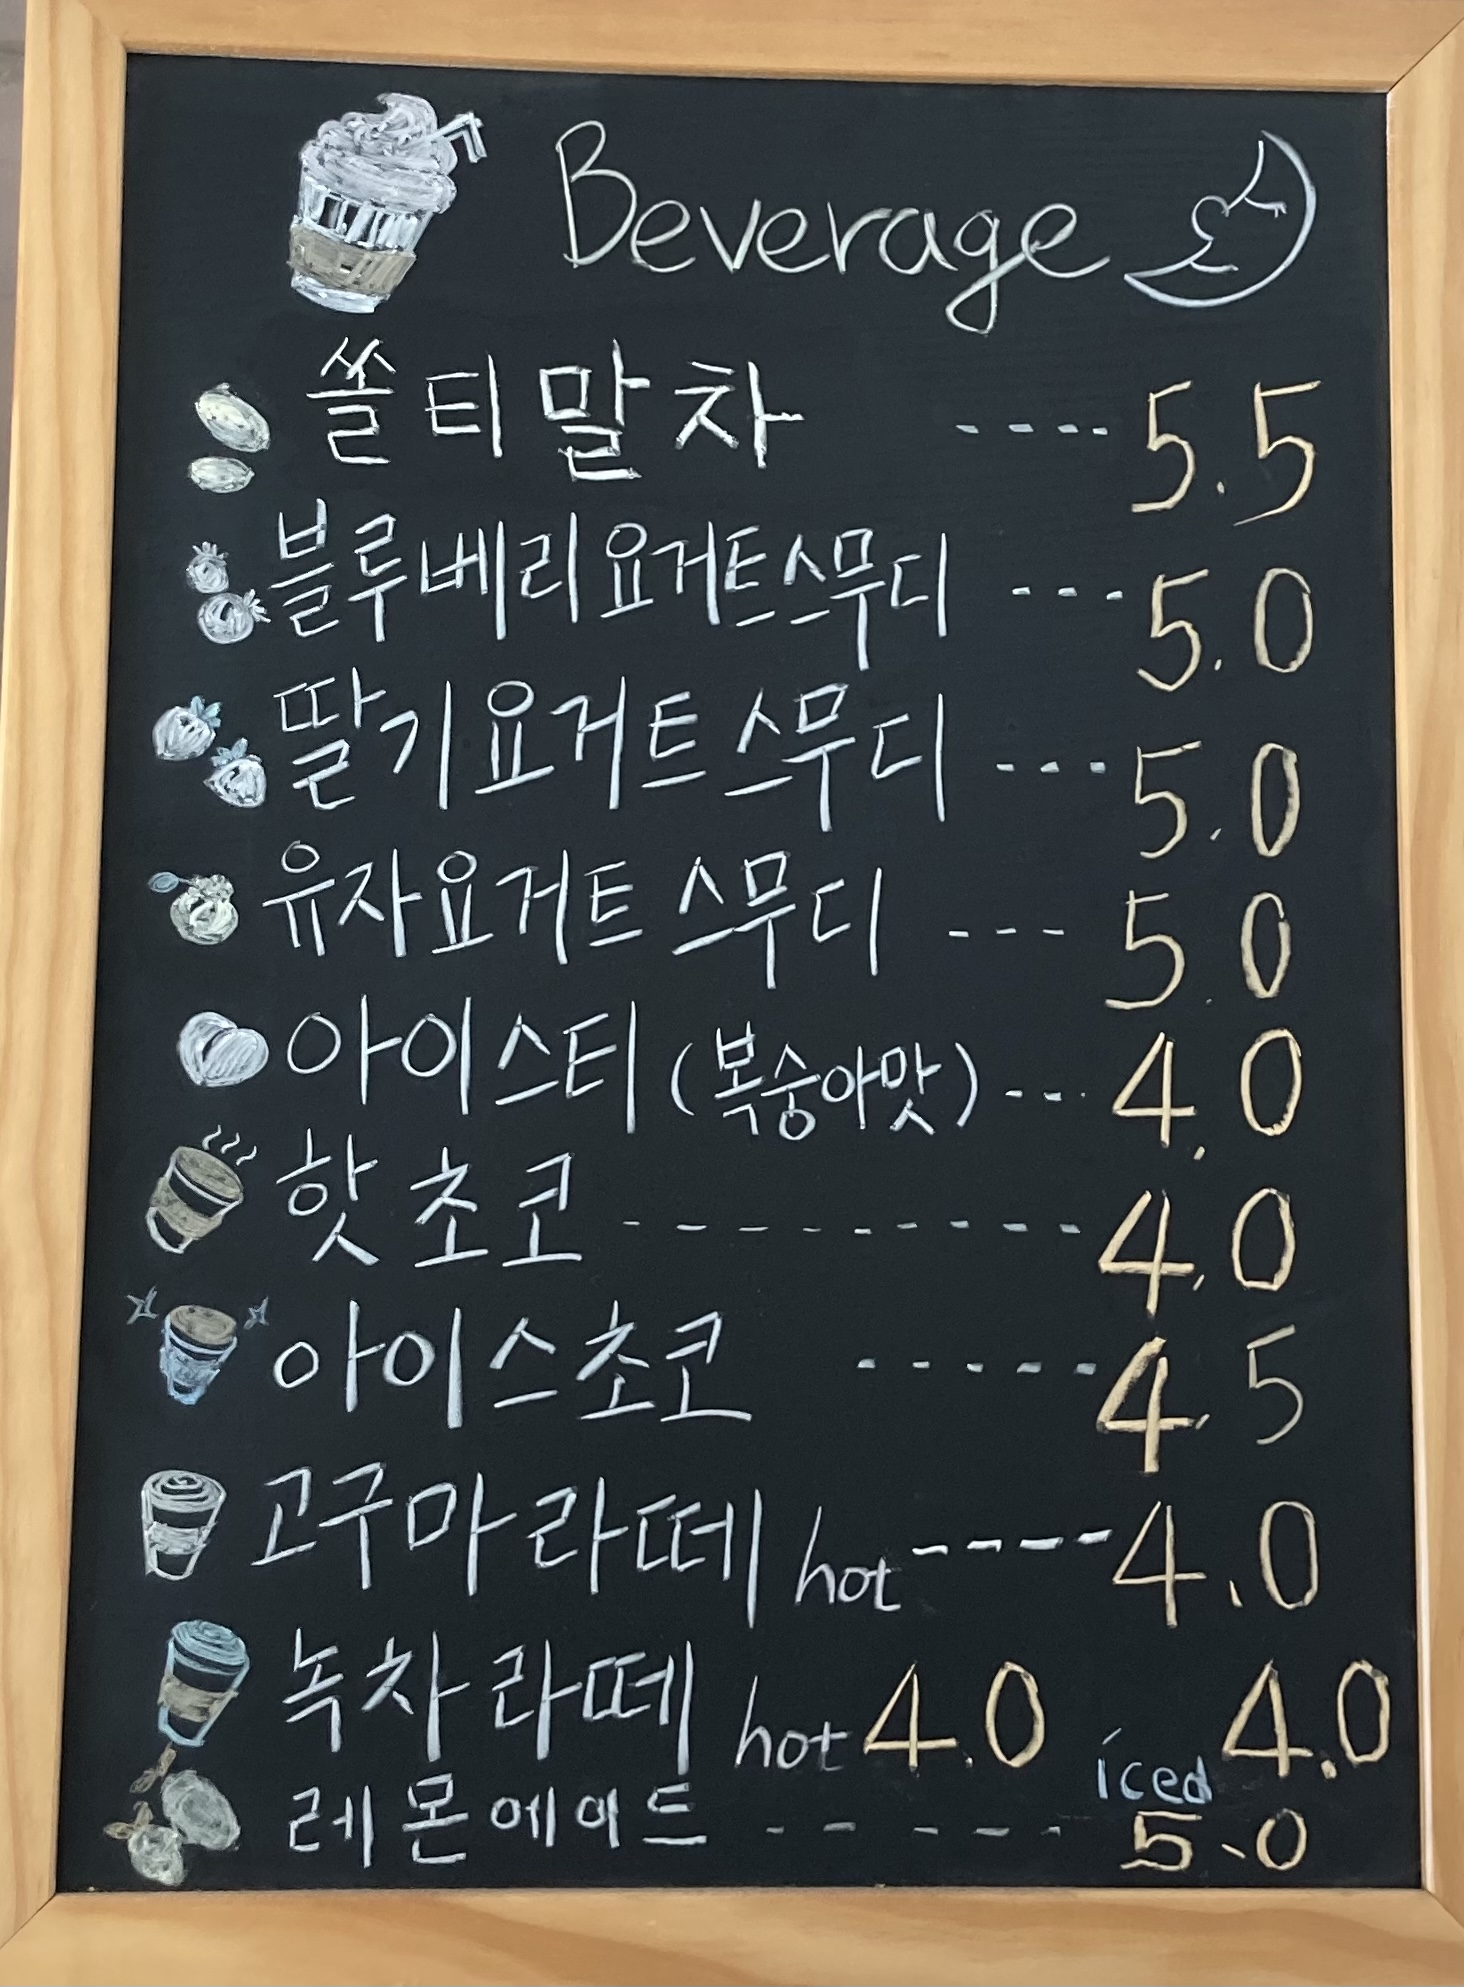 Beverage
쏠티말차 ---- 5.5
블루베리요거트스무디 --- 5.0
딸기요거트스무디 --- 5.0
유자요거트 스무디 --- 5.0
아이스티 (복숭아맛) --- 4.0
핫초코 --------- 4.0
아이스초코 ----- 4.5
고구마라떼 hot ---- 4.0
녹차라떼 hot 4.0 iced 4.0
레몬에이드 ------ 5.0